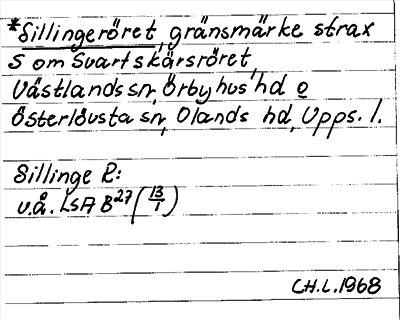 *Sillingeröret, gränsmärke strax
S om Svartskärsröret,
Västlands sn, Örbyhus hd o
Österlövsta sn, Olands hd, Upps. l.
Sillinge R:
u.å. LSA B27 (13/1)
CH.L. 1968